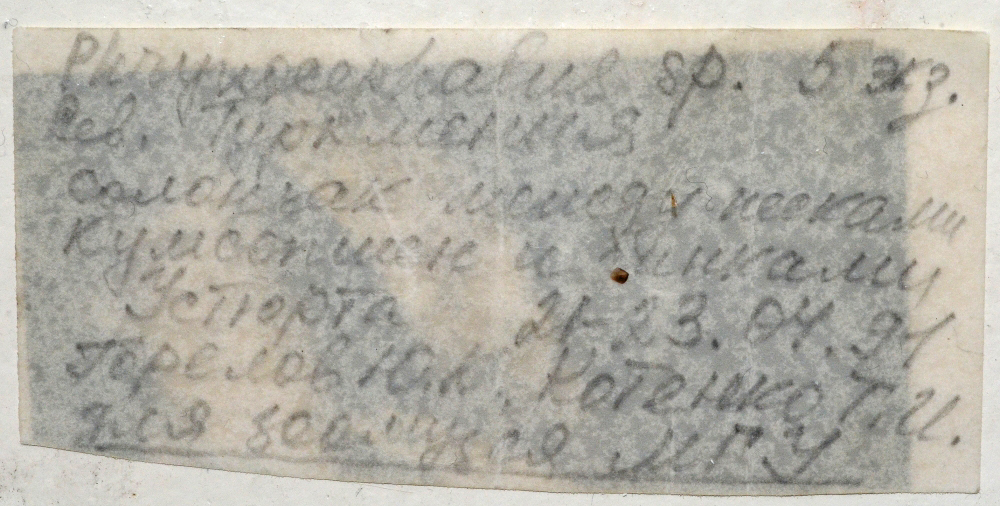 Phrynocephalus sp. 5 экз.
Сев. Туркмения
солончак между песками
Кумсетшен и чинками
Устюрта 21-23.04.91
Горелов Ю.К. Котенко Т.И.
для зоомузея МГУ